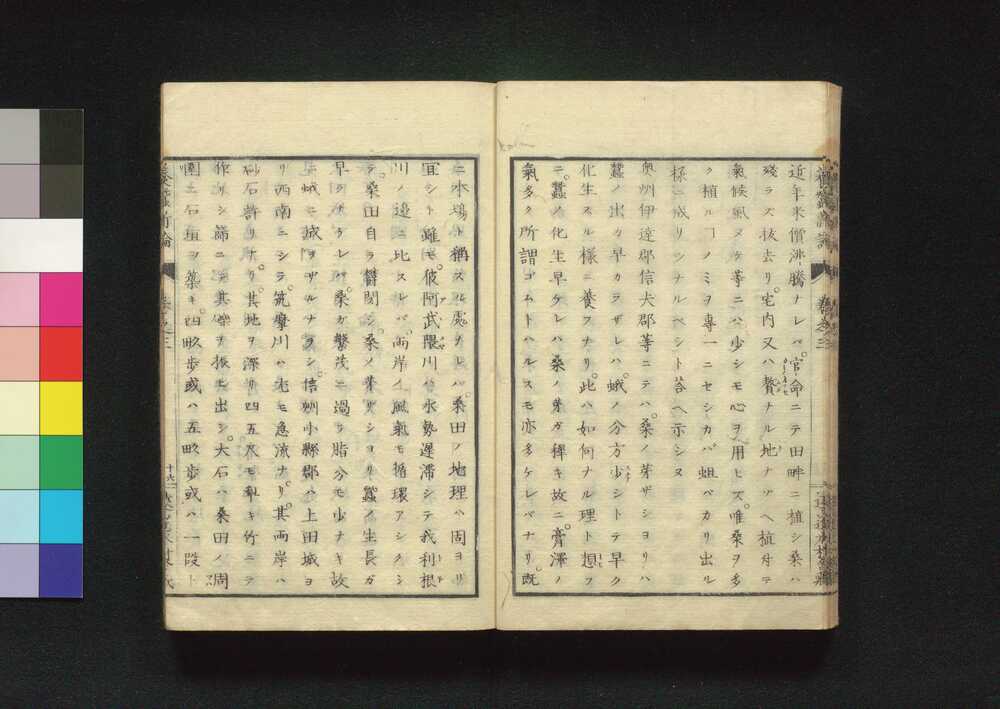 近年米價沸騰ナレバ官命ニテ田畔ニ植シ桑ハ
殘ラズ抜去リ宅内又ハ贅ナル地ナゾヘ植付テ
氣候風ヌケ等ニハ少シモ心ヲ用ヒズ唯桑ヲ多
ク植ルヿノミヲ專一ニセシカバ蛆バカリ出ル
様ニ成リシナルベシト荅ヘ示シヌ
奥州伊達郡信夫郡等ニテハ桑ノ芽ザシヨリハ
蠶ノ出カ早カラザレハ蛾ノ分方少シトテ早ク
化生スル様ニ養フナリ此ハ如何ナル理ト想フ
ニ蠶ノ化生早ケレハ桑ノ芽ガ稗キ故ニ膏澤ノ
氣多ク所謂ゴムトハルスモ亦多ケレバナリ既
ニ本場ト稱スル處ナレハ桑田ノ地理ハ固ヨリ
宜シト雖モ彼阿武隈川ハ水勢遲滞シテ我利根
川ノ邉ニ比スレバ両岸イ風氣モ循環アシクシ
テ桑田自ラ欝閉シ桑ノ芽リシヨリ蠶ノ生長ガ
早クナケレバ桑ガ繁茂ニ過テ脂分モ少ナキ故
生蛾ニ減ヲザルナラシ信州小縣郡ハ上田城ヨ
リ西南ニシテ筑摩川ハ尤モ急流ナリ其両岸ハ
砂石許リナリ其地ヲ深サ四五尺モ穿キ竹ニテ
作リシ篩ニテ其礫ヲ振ヒ出シ大石ハ桑田ノ周
圍ニ石垣ヲ築キ四畝歩或ハ五畝歩或ハ一段ト
養蠶新論
十六